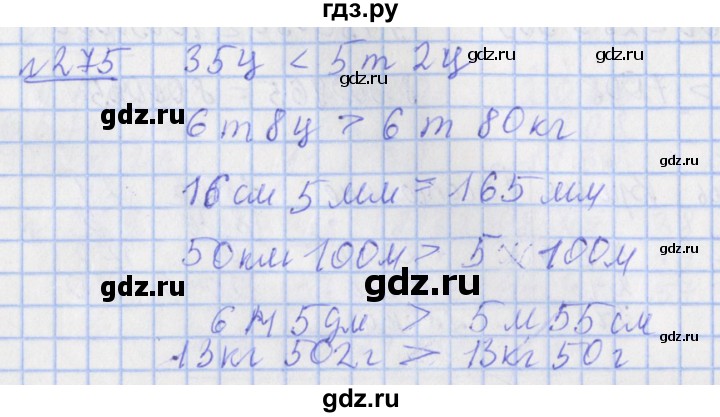 гдз.ру
№275 35ц < 5т 2ц
gdz.ru gdz.ru gdz.ru
6т 8ц > 6т 80кг
gdz.ru gdz.ru
16см 5мм = 165мм
gdz.ru gdz.ru
50км 100м > 5 100м
gdz.ru gdz.ru gdz.ru
6м 5дм > 5м 55см
gdz.ru gdz.ru
13кг 502г > 13кг 50г
gdz.ru